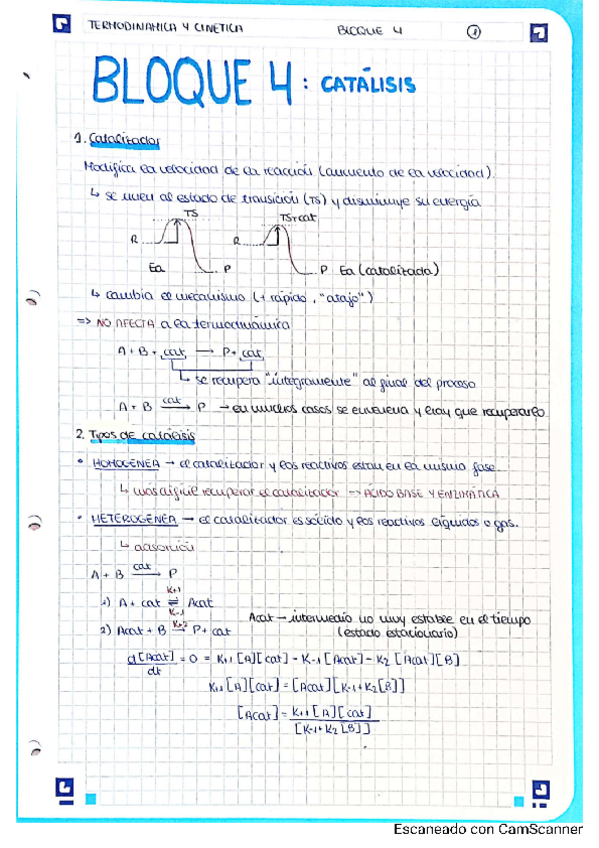 TERMODINAMICA Y CINETICA BLOQUE 4 1
BLOQUE 4: CATÁLISIS
1. Catalizador
Modifica la velocidad de la reacción (aumento de la velocidad).
↳ se unen al estado de transición (TS) y disminuye su energía
TS TS+cat
R R
Ea P P Ea (catalizada)
↳ cambia el mecanismo (+ rápido, "atajo")
=> NO AFECTA a la termodinámica
A + B + cat → P + cat
↳ se recupera "íntegramente" al final del proceso
A + B cat→ P → en muchos casos se envenena y hay que recuperarlo
2. Tipos de catálisis
• HOMOGÉNEA → el catalizador y los reactivos estan en la misma fase.
↳ mas dificil recuperar el catalizador → ACIDO BASE Y ENZIMATICA
• HETEROGÉNEA → el catalizador es sólido y los reactivos líquidos o gas.
↳ adsorción
A + B cat→ P
1) A + cat K+1 ⇌ K-1 Acat
2) Acat + B K+2→ P + cat
Acat → intermedio no muy estable en el tiempo
(estado estacionario)
d[Acat]/dt = 0 = K+1 [A][cat] - K-1 [Acat] - K2 [Acat][B]
K+1 [A][cat] = [Acat][K-1 + K2[B]]
[Acat] = K+1 [A][cat] / [K-1 + K2 [B]]
Escaneado con CamScanner